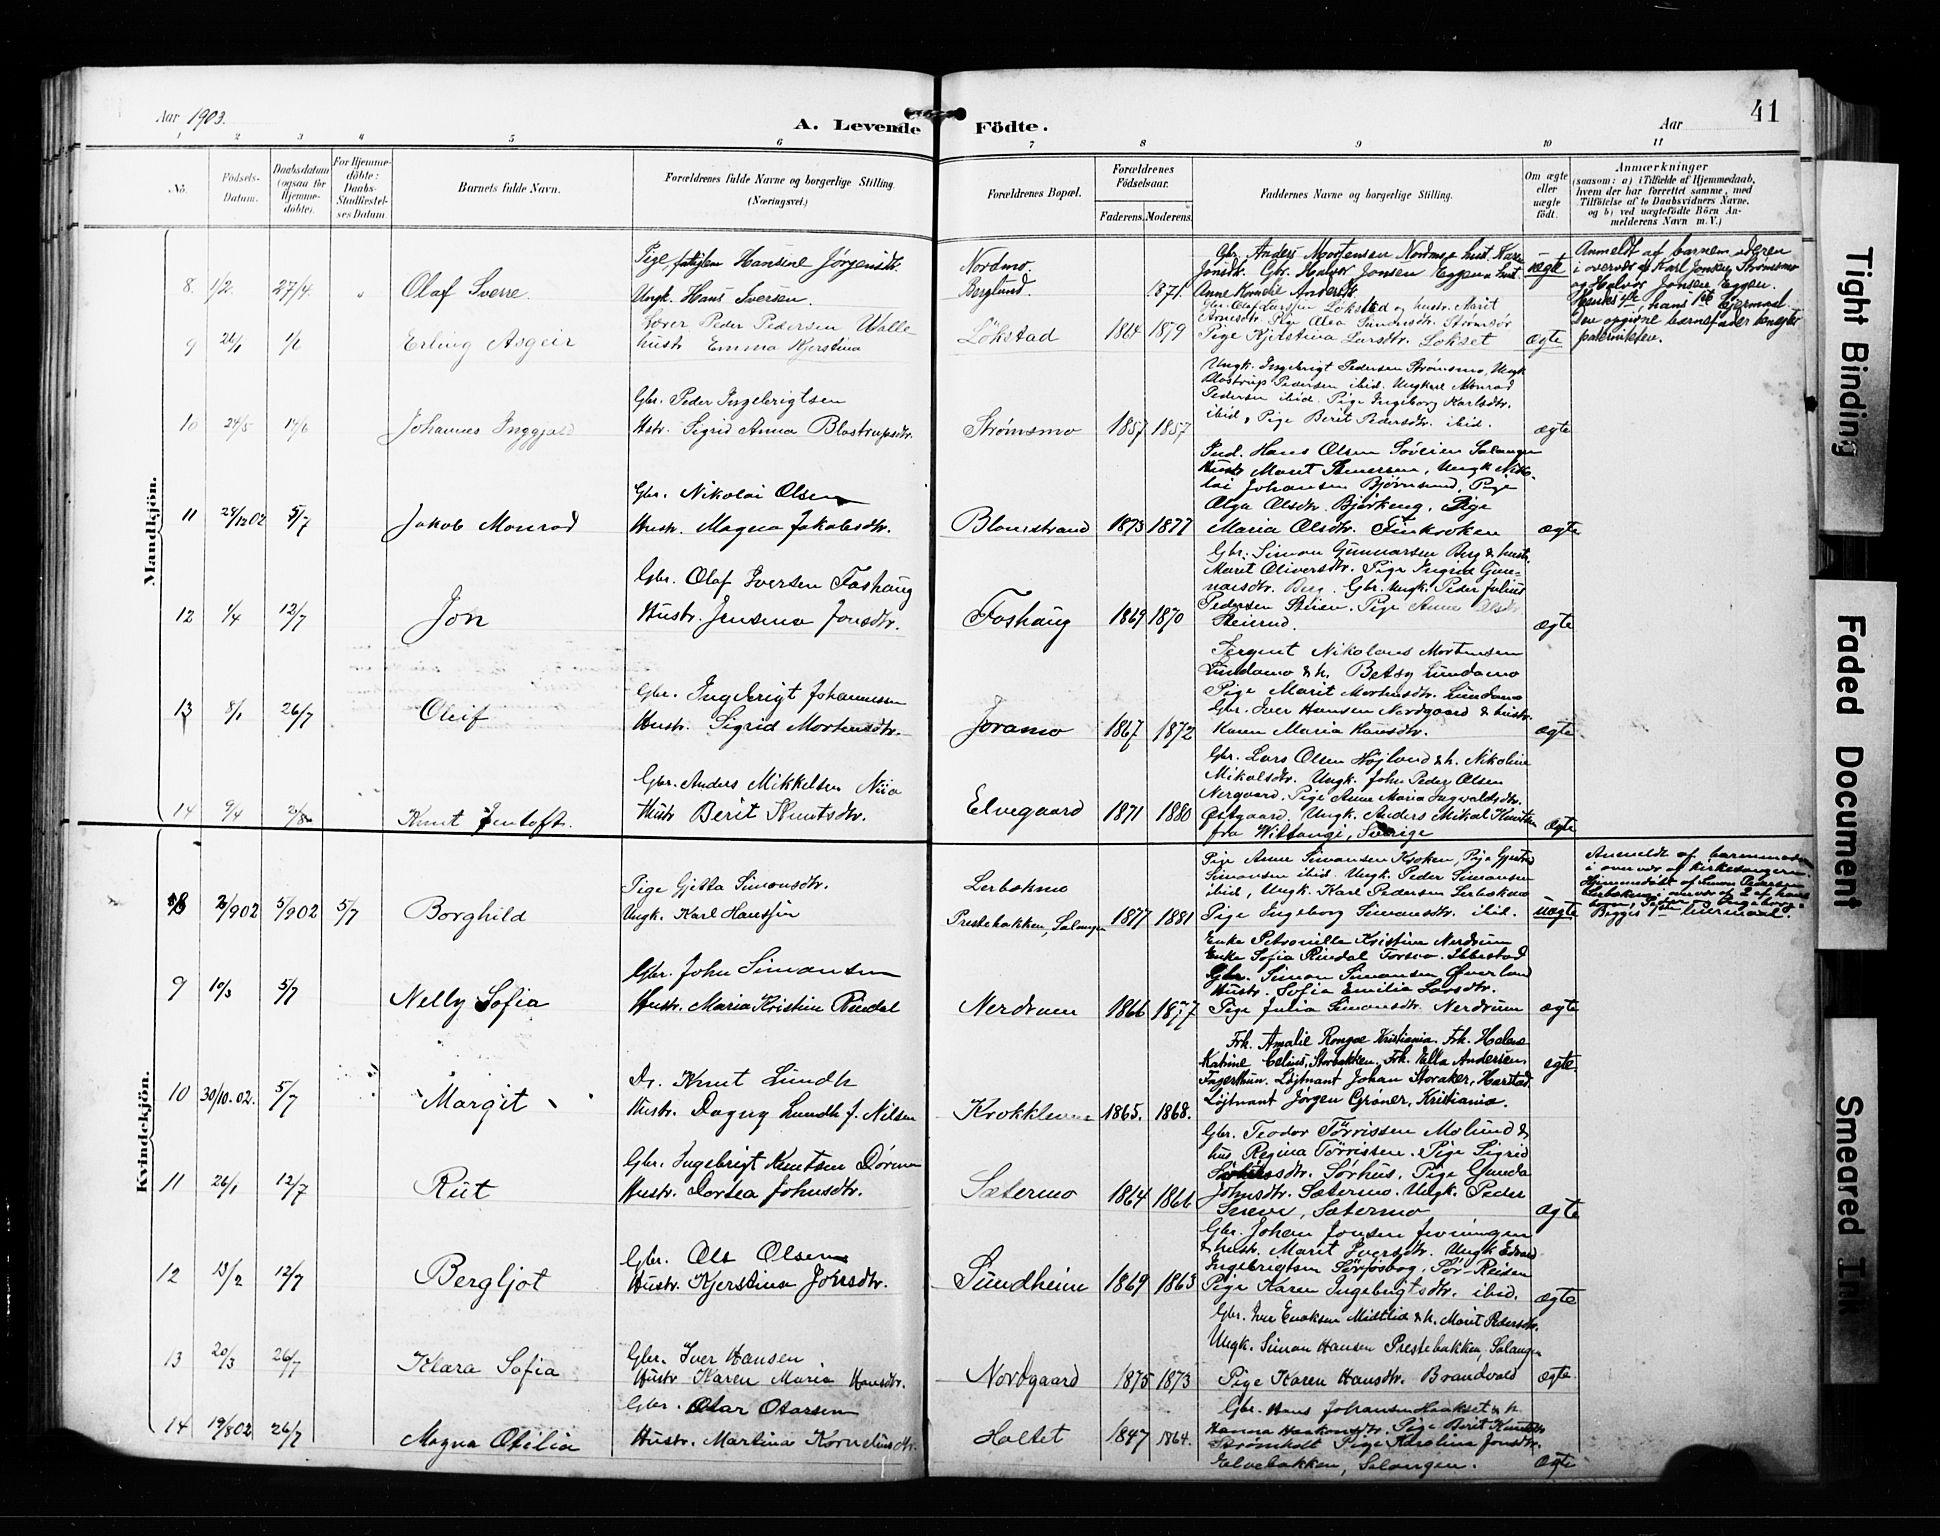 Aar 1903.
A. Levende Födte.
Aar
41
1 2 3 4 5 6 7 8 9 10 11
No.
Födsels-Datum.
Daabsdatum (ogsaa for Hjemme-döbte).
For Hjemme-döbte: Daabs-Stadfæstel-ses Datum.
Barnets fulde Navn.
Forældrenes fulde Navne og borgerlige Stilling.
(Næringsvei.)
Forældrenes Bopæl.
Forældrenes Födselsaar.
Faderens. Moderens.
Faddernes Navne og borgerlige Stilling.
Om ægte eller uægte födt.
Anmærkninger
(saasom: a) i Tilfælde af Hjemmedaab,
hvem der har forrettet samme, med
Tilföielse af to Daabsvidners Navne,
og b) ved uægtefödte Börn An-
melderens Navn m. V.)
Mandkjön.
8. 1/2. 27/4. " Olaf Sverre.
Pige Hansine Jørgensdtr.
Ungk. Hans Iversen.
Nordmo.
Berglund.
1871.
Gbr. Anders Mortensen Nordmo & hust. Karen
Jonsdtr. Gbr. Halvor Jonsen Eggen & hust.
Anne Kornelia Andersdtr.
uægte
Anmeldt af barnemoderen
i overvær af Karl Jonsen Strømsmo
og Halvor Jonsen Eggen.
hans 1ste leiermaal.
Den opgivne barnefader benegter
paterniteten.
9 26/1 1/6 Erling Asgeir
Lærer Peder Pedersen Walle
hustr Emma Kjerstina
Løkstad 1864 1879
Gbr. Olaf Larssen Løkstad og hustr. Marit
Arnesdtr. Pige Olea Simonsdtr. Strømsør
Pige Kjerstina Larsdtr. Løkset
ægte
10 24/5 14/6 Johannes Inggjald
Gbr. Peder Ingebrigtsen
Hstr. Sigrid Anna Blostrupsdtr.
Strømsmo 1857 1857
Ungk. Ingebrigt Pedersen Strømsmo, Ungk
Blostrup Pedersen ibid. Ungkarl Monrad
Pedersen ibid. Pige Ingeborg Karlsdtr.
ibid, Pige Berit Pedersdtr. ibid.
ægte
11 28/12 02 5/7 Jakob Monrad
Gbr. Nikolai Olsen
Hustr. Magna Jakobsdtr.
Blomstrand 1873 1877
Ind. Hans Olsen Søveien Salangen
Hustr Marit Simersen, Ungk Niko-
lai Johansen Bjørnsund, Pige
Olga Olsdtr. Bjørkeng, Pige
Maria Olsdtr. Finkroken
ægte
12 1/4 12/7 Jon
Gbr. Olaf Iversen Foshaug
Hustr. Jensina Jonsdtr.
Foshaug 1869 1870
Gbr. Simon Gunnarsen Berg & hustr.
Marit Oliversdtr. Pige Ingrid Gun-
narsdtr. Berg. Gbr. Ungk. Peder Julius
Pedersen Steien. Pige Anne Olsdtr.
Steiernd.
ægte
13 8/1 26/7 Oleif
Gbr. Ingebrigt Johannesen
Hustr. Sigrid Mortensdtr.
Joramo 1867 1872
Sergent Nikolaus Mortensen
Lundamo & h. Betsy Lundamo
Pige Marit Mortensdtr. Lundamo
Gbr. Iver Hansen Nordgaard & hustr.
Karen Maria Hansdtr.
ægte
14 9/4 2/8 Knut Jentoft.
Gbr. Anders Mikkelsen Niia
Hustr Berit Knutsdtr.
Elvegaard 1871 1880
Gbr. Lars Olsen Højlund & h. Nikoline
Mikalsdtr. Ungk. John Peder Olsen
Nergaard. Pige Anne Maria Ingvaldsdtr.
Østgaard. Ungk. Anders Mikal Knutsen
fra Wittangi, Sverige
ægte
Kvindekjön.
8 2/902 5/902 5/7 Borghild
Pige Gjetta Simonsdtr.
Ungk. Karl Hanssen
Lerbakmo
Prestebakken, Salangen 1877 1881
Pige Anne Simonsen Kroken, Pige Gjertrud
Simonsen ibid. Ungk. Peder Simonsen
ibid, Ungk. Karl Pedersen Lerbakmo
Pige Ingeborg Simonsdtr. ibid.
uægte
Anmeldt af barnemoderen
i overvær af kirkesangeren.
Hjemmedøbt af Simon Pedersen
Lerbakmo i overvær af 2 af hans
børn, Peter og Ingeborg.
Begges 1ste leiermaal.
9 10/3 5/7 Nelly Sofia
Gbr. John Simonsen
Hustr. Maria Kristine Rindal
Nerdrum 1866 1877
Enke Petronille Kristine Nerdrum
Enke Sofia Rindal Forsvo. Ibbestad
Gbr. Simon Simonsen Øverland
Hustr. Sofia Emilia Larsdtr.
Pige Julia Simonsdtr. Nerdrum
ægte
10 30/10-02. 5/7 Margit
Dr. Knut Lundh
Hustr. Dagny Lundh f. Nilsen
Krokkleiven 1865. 1868.
Frk. Amalie Rongoe Kristiania. Frk. Helene
Katrine Celius, Storbakken. Frk. Ella Andersen,
Fagerthun. Løjtnant Johan Storaker, Harstad.
Løjtnant Jørgen Graner, Kristiania.
ægte
11 26/1 12/7 Rut
Gbr. Ingebrigt Knutsen Dørmo
Hustr. Dordea Johnsdtr.
Sætermo 1864 1866
Gbr. Teodor Tørrissen Molund &
hus Regina Tørrissen. Pige Sigrid
Sørhus, Pige Gunda
Johnsdtr. Sætermo. Ungk. Peder
Sneve, Sætermo
ægte
12 13/2 12/7 Bergljot
Gbr. Ole Olsen
Hustr. Kjerstina Jonsdtr.
Sundheim 1869 1863
Gbr. Johan Jonsen
& hustr. Marit Iversdtr. Ungk Edvard
Ingebrigtsen Sørfosbog, Sør-Reisen
Pige Karen Ingebrigtsdtr. ibid.
ægte
13 20/3 26/7 Klara Sofia
Gbr. Iver Hansen
Hustr Karen Maria Hansdtr.
Nordgaard 1875 1873
Gbr. Iver Enoksen Midtlid & h. Marit Pedersdtr.
Ungk. Simon Hansen Prestebakken, Salangen
Pige Karen Hansdtr. Brandvold
ægte
14 19/8 02 26/7 Magna Otilia
Gbr. Olar Otarsen
Hustr. Martina Korneliusdtr.
Holtet 1847 1864.
Gbr. Hans Johansen Haakset & h
Hanna Haakonsdtr. Pige Berit Knutsdtr
Strømholt Pige Karolina Jonsdtr.
Elvebakken, Salangen.
ægte
Tight Binding
Faded Document
Smeared Ink